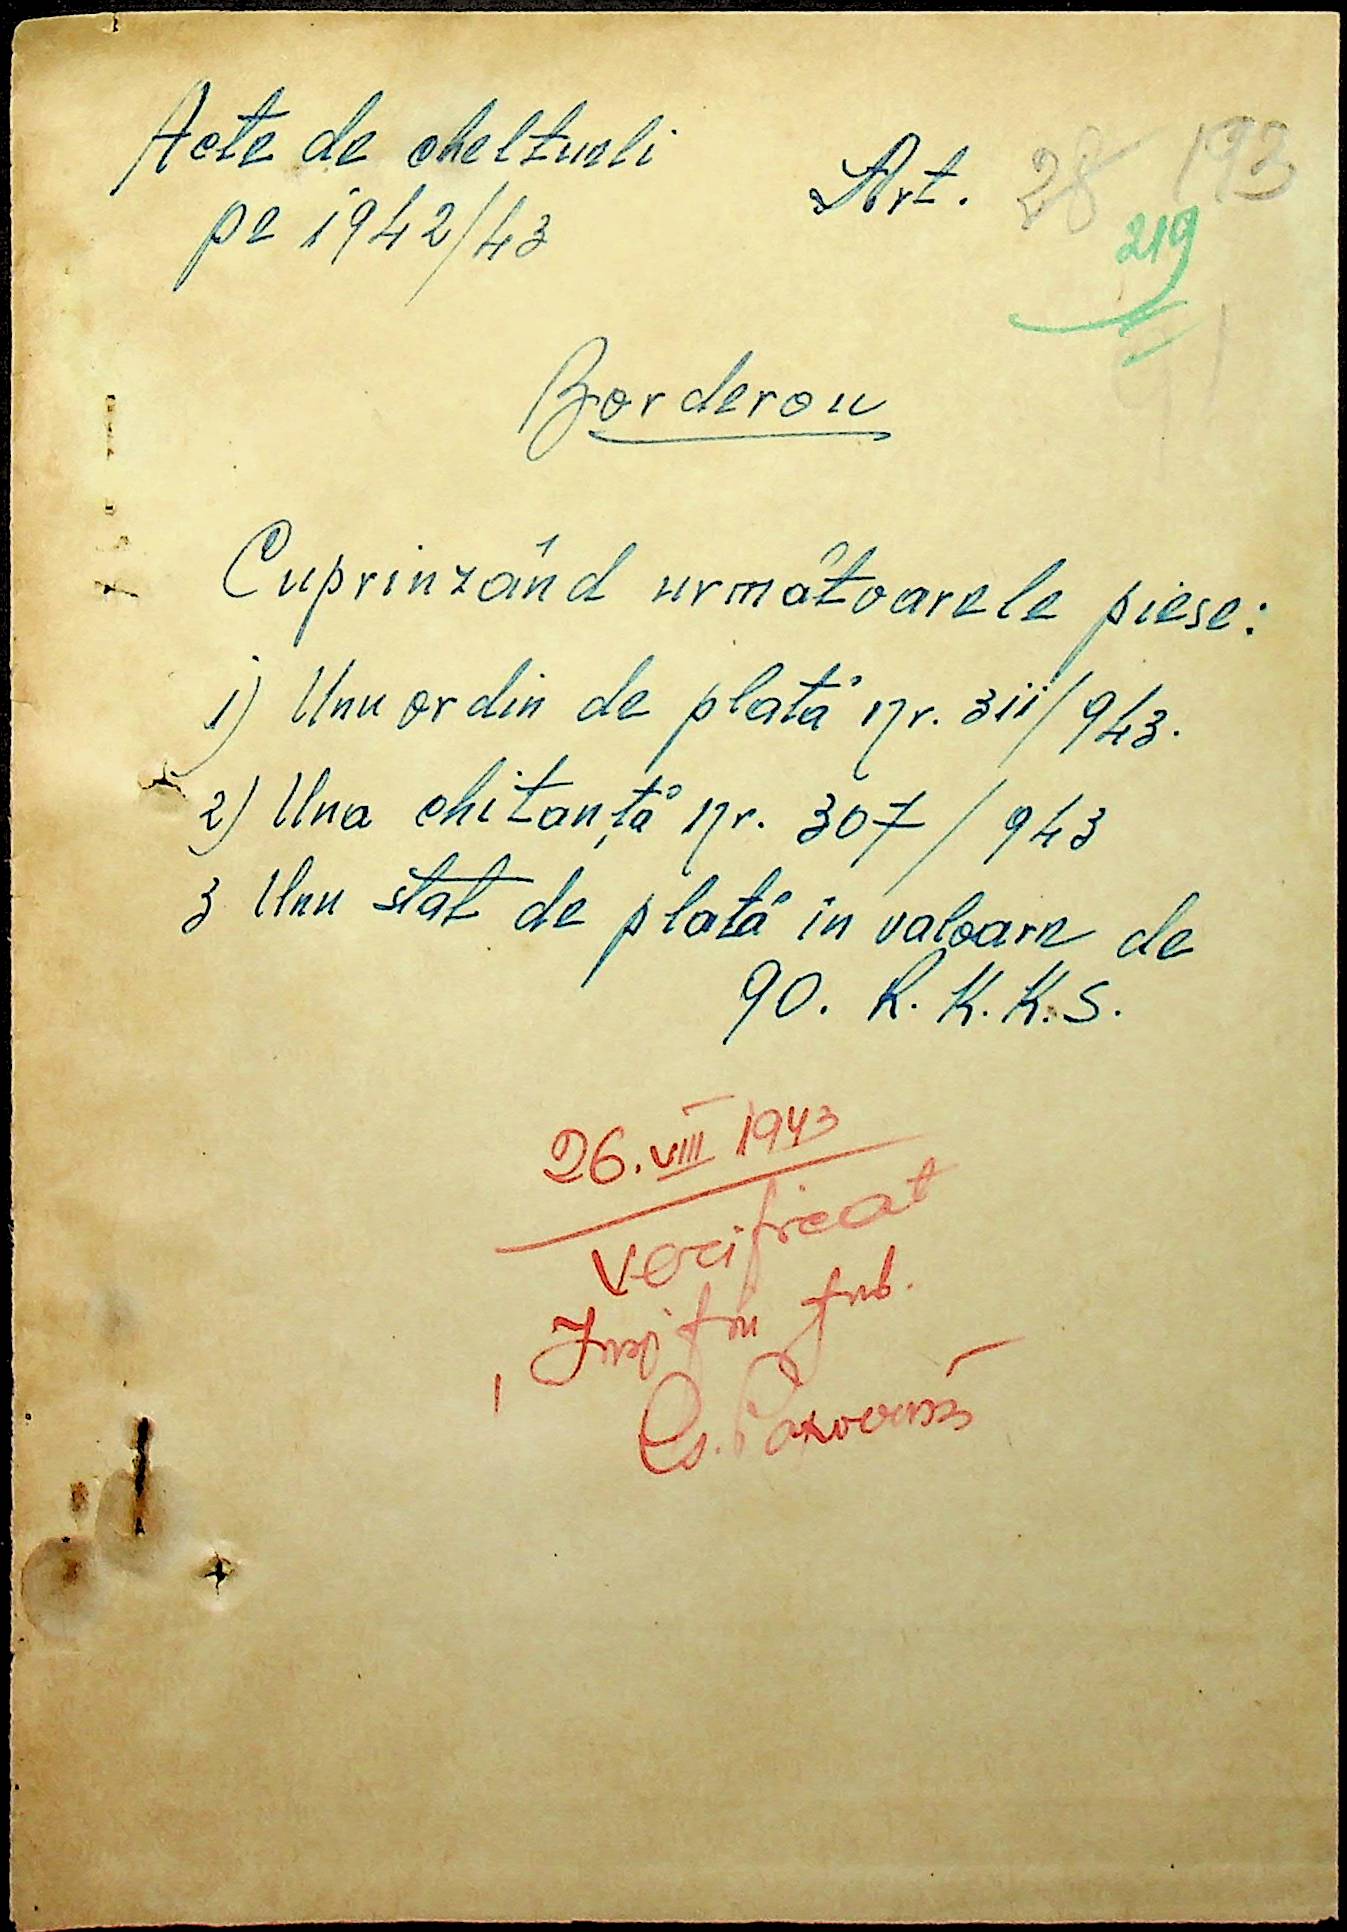 Acte de cheltueli
pe 1942/43
Art. 28 193
219
Borderou
Cuprinzând următoarele piese:
1) Unu ordin de plată nr. 311/943.
2) Una chitanță nr. 307/943
3 Unu stat de plată in valoare de
90. R.K.K.S.
26.VIII 1943
verificat